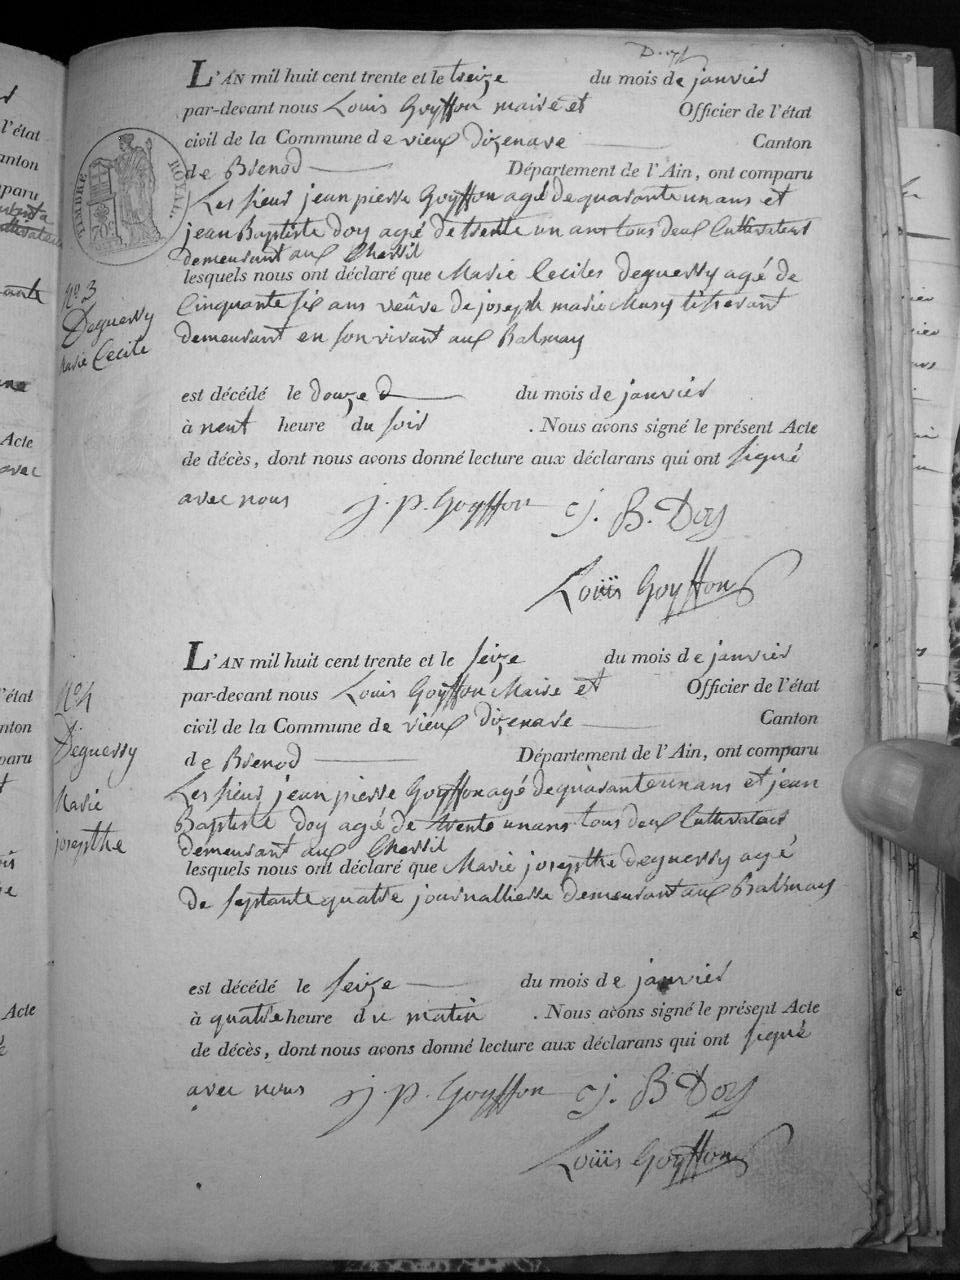 L'AN mil huit cent trente et le treize du mois de janvier
par-devant nous Louis Goyffon maire et Officier de l'état
civil de la Commune de vieux dizenave Canton
de Brenod Département de l'Ain, ont comparu
Les sieur jean pierre Goyffon agé de quarante un ans et
jean Baptiste doy agé de trente un ans tous deux Cultivateur
demeurant aux Chevril
lesquels nous ont déclaré que Marie Ceciles Deguerry agé de
Cinquante six ans veûve de joseph marie Musy tisserant
demeurant en son vivant aux Balmay
est décédé le douze du mois de janvier
à neuf heure du soir . Nous avons signé le présent Acte
de décès, dont nous avons donné lecture aux déclarans qui ont signé
avec nous j. p. Goyffon j. B. Doy
Louis Goyffon
TIMBRE ROYAL
N° 3
Deguerry
Marie Cecile
L'AN mil huit cent trente et le seize du mois de janvier
par-devant nous Louis Goyffon Maire et Officier de l'état
civil de la Commune de vieux dizenave Canton
de Brenod Département de l'Ain, ont comparu
Les sieur jean pierre Goyffon agé de quarante un ans et jean
Baptiste doy agé de trente un ans tous deux Cultivateur
demeurant aux Chevril
lesquels nous ont déclaré que Marie josepthe deguerry agé
de septante quatre journalliere demeurant aux Balmay
est décédé le seize du mois de janvier
à quatre heure du matin . Nous avons signé le présent Acte
de décès, dont nous avons donné lecture aux déclarans qui ont signé
avec nous j. p. Goyffon j. B Doy
Louis Goyffon
N° 4
Deguerry
Marie
josepthe
l'état
anton
mparu
Acte
avec
l'état
nton
paru
Acte